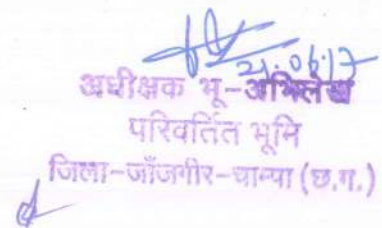 21.06.17
अधीक्षक भू-अभिलेख
परिवर्तित भूमि
जिला-जाँजगीर-चाम्पा (छ.ग.)